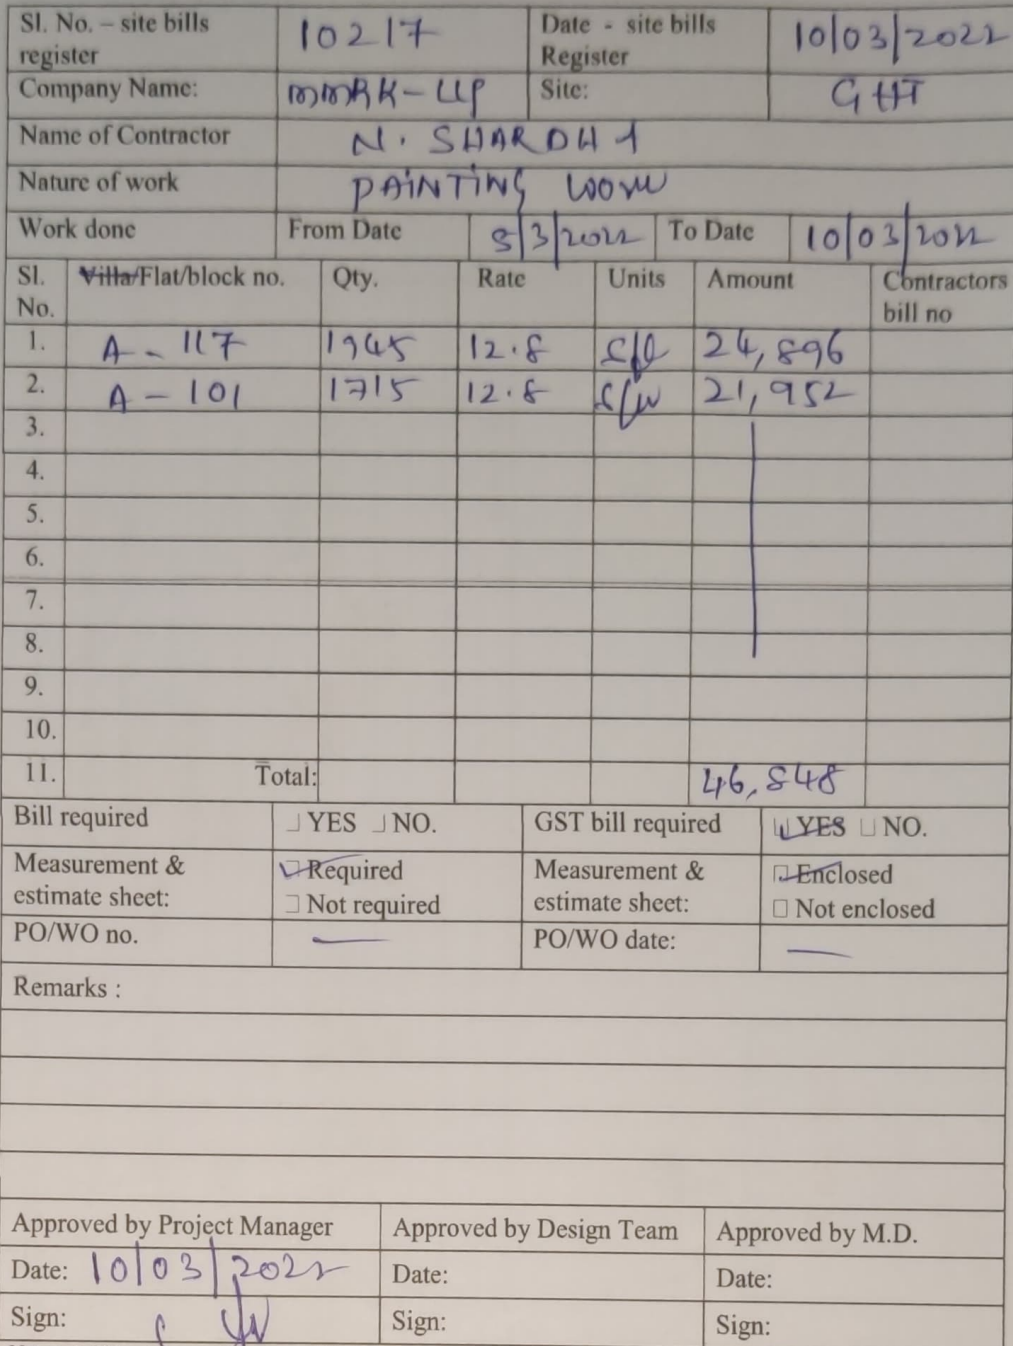 Sl. No. – site bills register 10217 Date - site bills Register 10/03/2022
Company Name: MMRK-LLP Site: GHT
Name of Contractor N. SHARDHA
Nature of work PAINTING WORK
Work done From Date 5/3/2022 To Date 10/03/2022
Sl. No. Villa/Flat/block no. Qty. Rate Units Amount Contractors bill no
1. A - 117 1945 12.8 24,896
2. A - 101 1715 12.8 21,952
3.
4.
5.
6.
7.
8.
9.
10.
11. Total: 46,848
Bill required YES NO. GST bill required YES NO.
Measurement & estimate sheet: Required Not required Measurement & estimate sheet: Enclosed Not enclosed
PO/WO no. — PO/WO date: —
Remarks :
Approved by Project Manager Approved by Design Team Approved by M.D.
Date: 10/03/2022 Date: Date:
Sign: Sign: Sign: